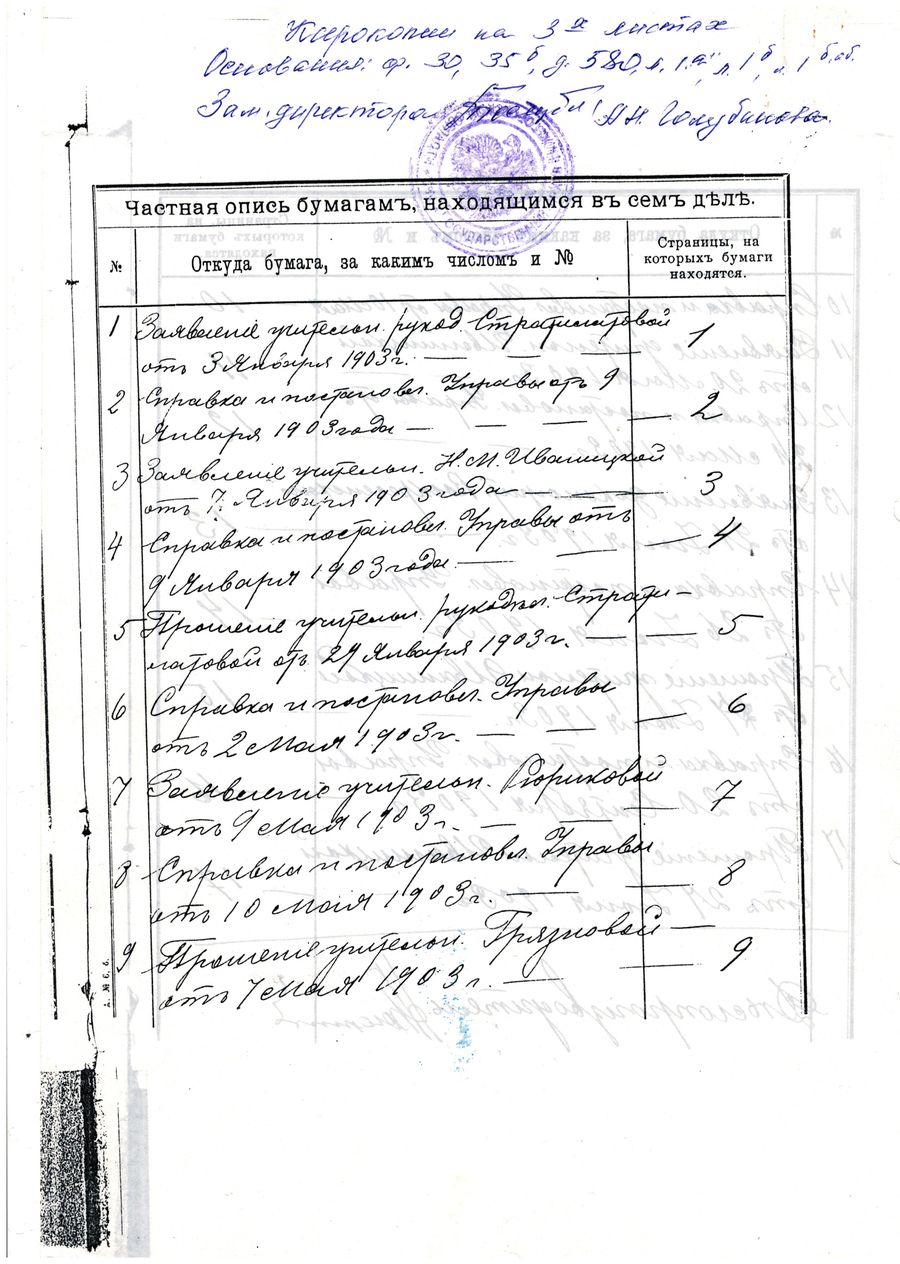 Ксерокопии на 3х листах
Основания: ф. 30, 35б, д. 580, л. 1а, л. 1б, л. 1б об.
Зам. директора А.Н. Голубинова
ГОСУДАРСТВЕННЫЙ
Частная опись бумагамъ, находящимся въ семъ дѣлѣ.
№
Откуда бумага, за какимъ числомъ и №
Страницы, на
которыхъ бумаги
находятся.
1 Заявленіе учительн. рукод. Стратилатовой
отъ 3 Января 1903 г. — — — 1
2 Справка и постановл. Управы отъ 9
Января 1903 года — — — — 2
3 Заявленіе учительн. Н. М. Ивашицкой
отъ 7 Января 1903 года — — — 3
4 Справка и постановл. Управы отъ
9 Января 1903 года — — — 4
5 Прошеніе учительн. рукодѣл. Страти-
латовой отъ 29 Января 1903 г. — — 5
6 Справка и постановл. Управы
отъ 2 Мая 1903 г. — — — 6
7 Заявленіе учительн. Рюриковой
отъ 9 Мая 1903 г. — — — 7
8 Справка и постановл. Управы
отъ 10 Мая 1903 г. — — 8
9 Прошеніе учительн. Грязновой —
отъ 7 Мая 1903 г. — — 9
А. № 6, б.